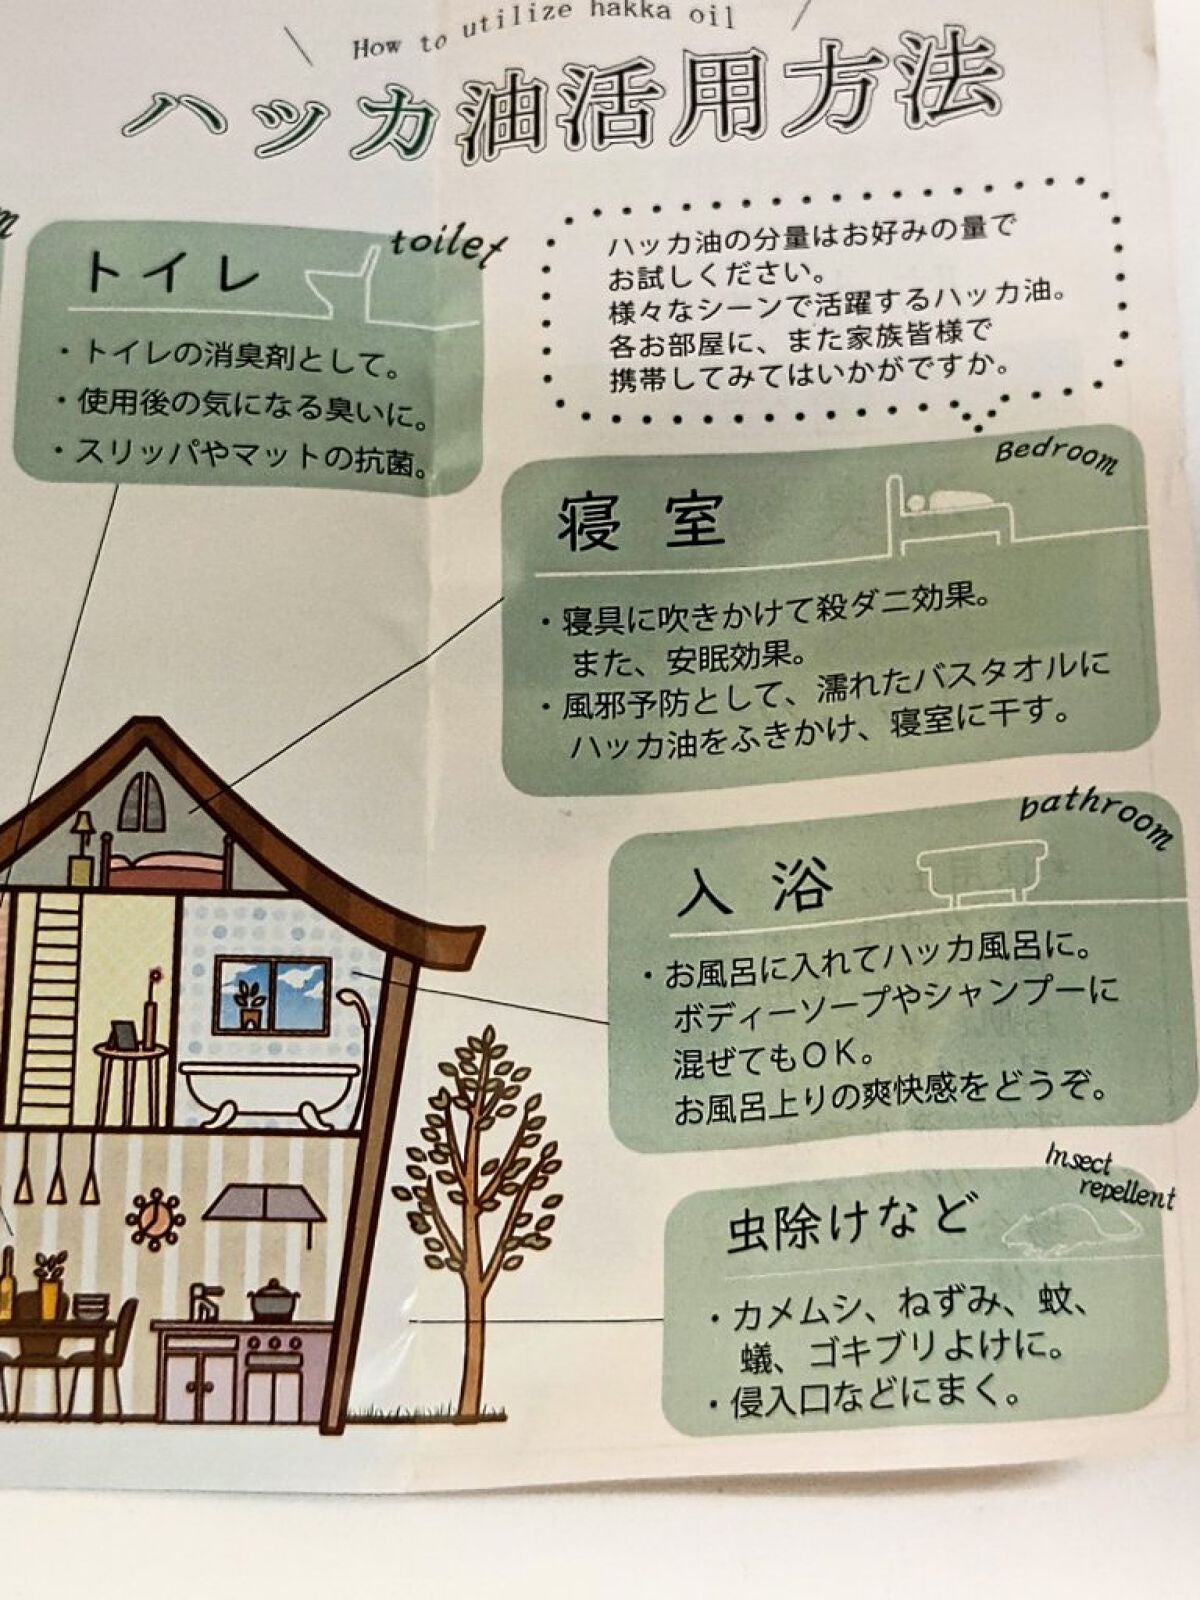 How to utilize hakka oil
ハッカ油活用方法
toilet
トイレ
・トイレの消臭剤として。
・使用後の気になる臭いに。
・スリッパやマットの抗菌。
ハッカ油の分量はお好みの量で
お試しください。
様々なシーンで活躍するハッカ油。
各お部屋に、また家族皆様で
携帯してみてはいかがですか。
Bedroom
寝室
・寝具に吹きかけて殺ダニ効果。
また、安眠効果。
・風邪予防として、濡れたバスタオルに
ハッカ油をふきかけ、寝室に干す。
bathroom
入浴
・お風呂に入れてハッカ風呂に。
ボディーソープやシャンプーに
混ぜてもOK。
お風呂上りの爽快感をどうぞ。
Insect
repellent
虫除けなど
・カメムシ、ねずみ、蚊、
蟻、ゴキブリよけに。
・侵入口などにまく。